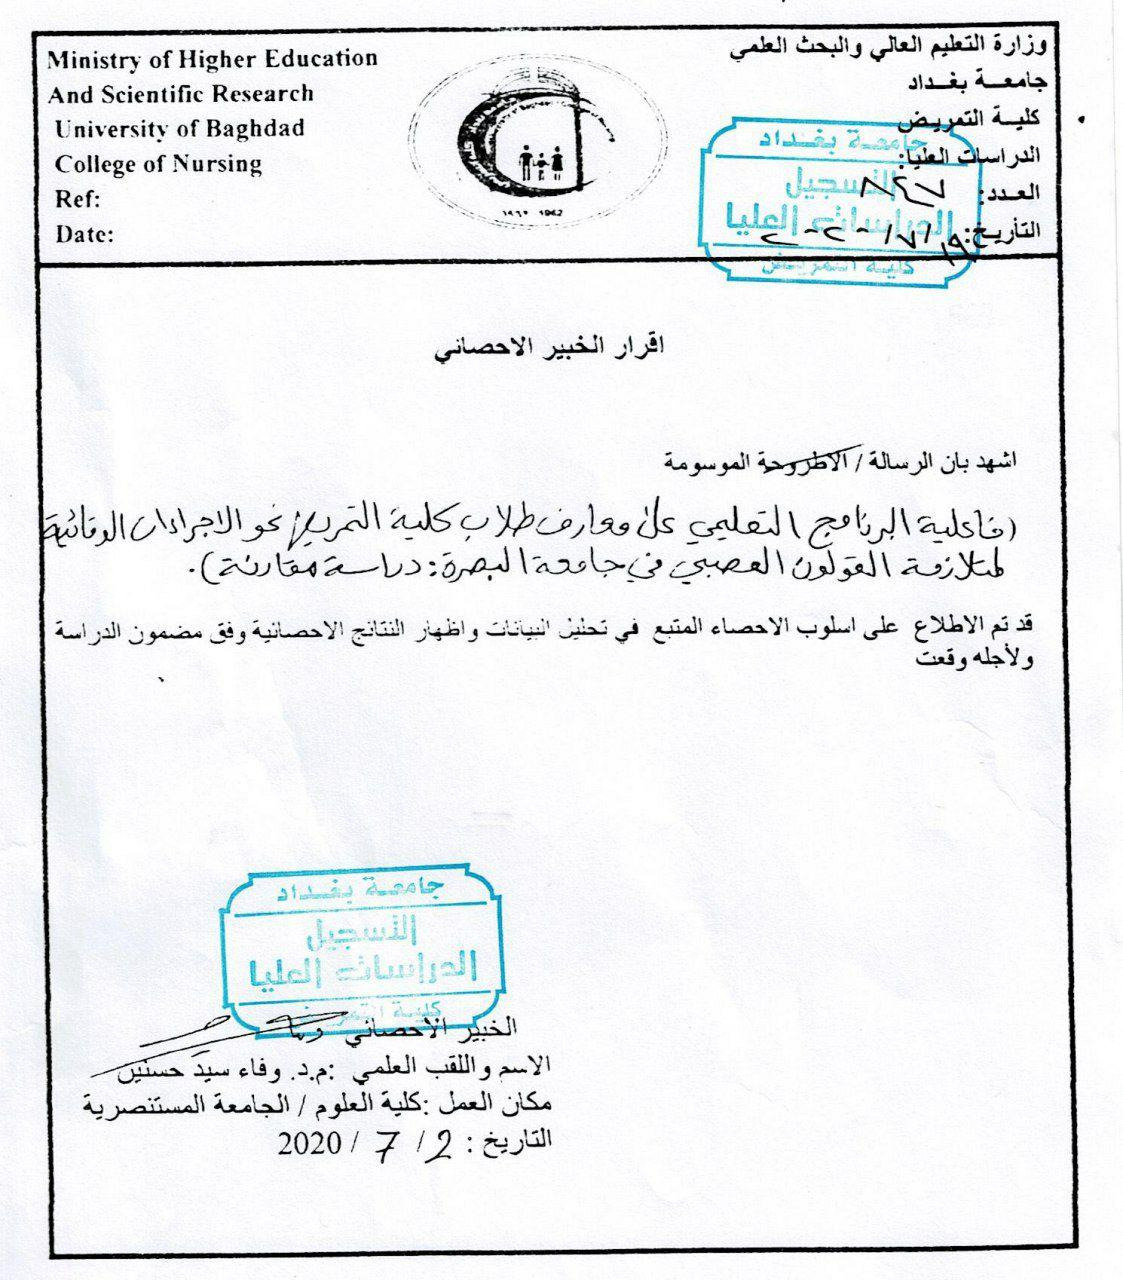 Ministry of Higher Education
And Scientific Research
University of Baghdad
College of Nursing
Ref:
Date:
١٩٦٢ 1962
وزارة التعليم العالي والبحث العلمي
جامعـــة بغـــداد
كليـــة التمريـض
الدراسات العليا:
العـدد: ٨٤٧
التأريخ: ١٩/٧/٢٠٢٠
جامعـة بغـداد
التسجيل
الدراسات العليا
كليـة التمريـض
اقرار الخبير الاحصائي
اشهد بان الرسالة / الاطروحة الموسومة
(فاعلية البرنامج التعليمي على معارف طلاب كلية التمريض نحو الاجراءات الوقائية
لمتلازمة القولون العصبي في جامعة البصرة: دراسة مقارنة).
قد تم الاطلاع على اسلوب الاحصاء المتبع في تحليل البيانات واظهار النتائج الاحصائية وفق مضمون الدراسة
ولأجله وقعت
جامعـة بغـداد
التسجيل
الدراسات العليا
كليـة التمريـض
الخبير الاحصائي
الاسم واللقب العلمي :م.د. وفاء سيد حسنين
مكان العمل :كلية العلوم / الجامعة المستنصرية
التاريخ : 2 / 7 / 2020